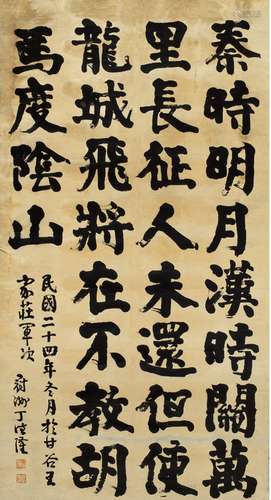 秦時明月漢時關萬
里長征人未還但使
龍城飛將在不教胡
馬度陰山
民國二十四年冬月於甘谷王
家莊軍次
丁德隆